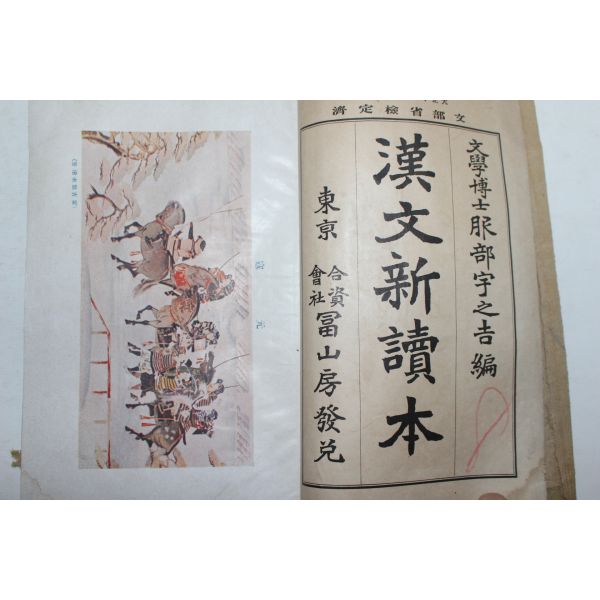 文部省檢定濟
文學博士服部宇之吉編
漢文新讀本
東亰 合資會社 冨山房發兌
元寇